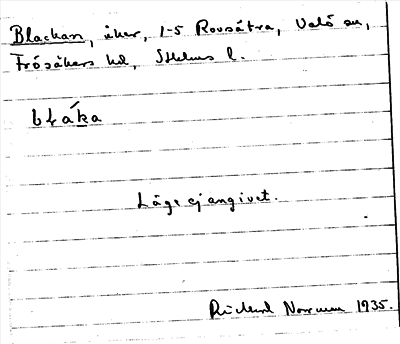 Blackan, åker, 1-5 Rovsätra, Valö sn,
Frösåkers hd, Sthlms l.
bláka
Läge ej angivet.
Rickard Norrman 1935.